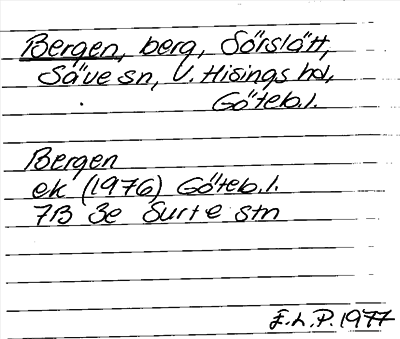 Bergen, berg, Sörslätt,
Säve sn, V. Hisings hd,
Göteb.l.
Bergen
ek (1976) Göteb.l.
7B 3e Surte stn
E.L.P. 1977